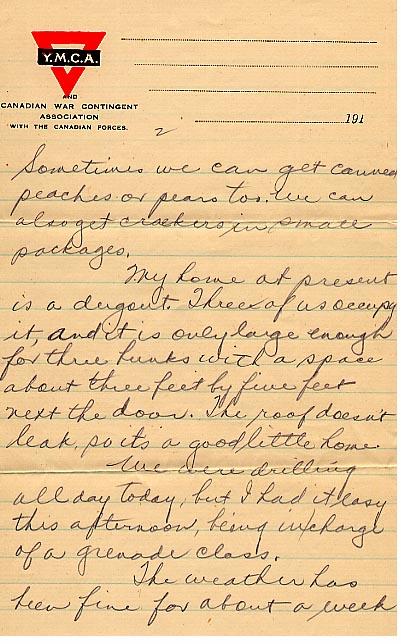 Y.M.C.A.
AND
CANADIAN WAR CONTINGENT
ASSOCIATION
WITH THE CANADIAN FORCES.
191
2
Sometimes we can get canned
peaches or pears too. We can
also get crackers in small
packages.
My home at present
is a dugout. Three of us occupy
it, and it is only large enough
for three bunks with a space
about three feet by five feet
next the door. The roof doesn't
leak, so its a good little home.
We were drilling
all day today, but I had it easy
this afternoon, being in charge
of a grenade class.
The weather has
been fine for about a week